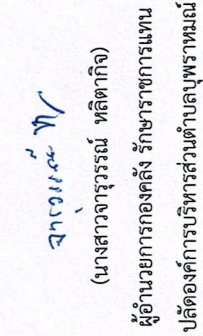 จารุวรรณ ห
(นางสาวจารุวรรณ์ หลิตากิจ)
ผู้อำนวยการกองคลัง รักษาราชการแทน
ปลัดองค์การบริหารส่วนตำบลบุพราหมณ์